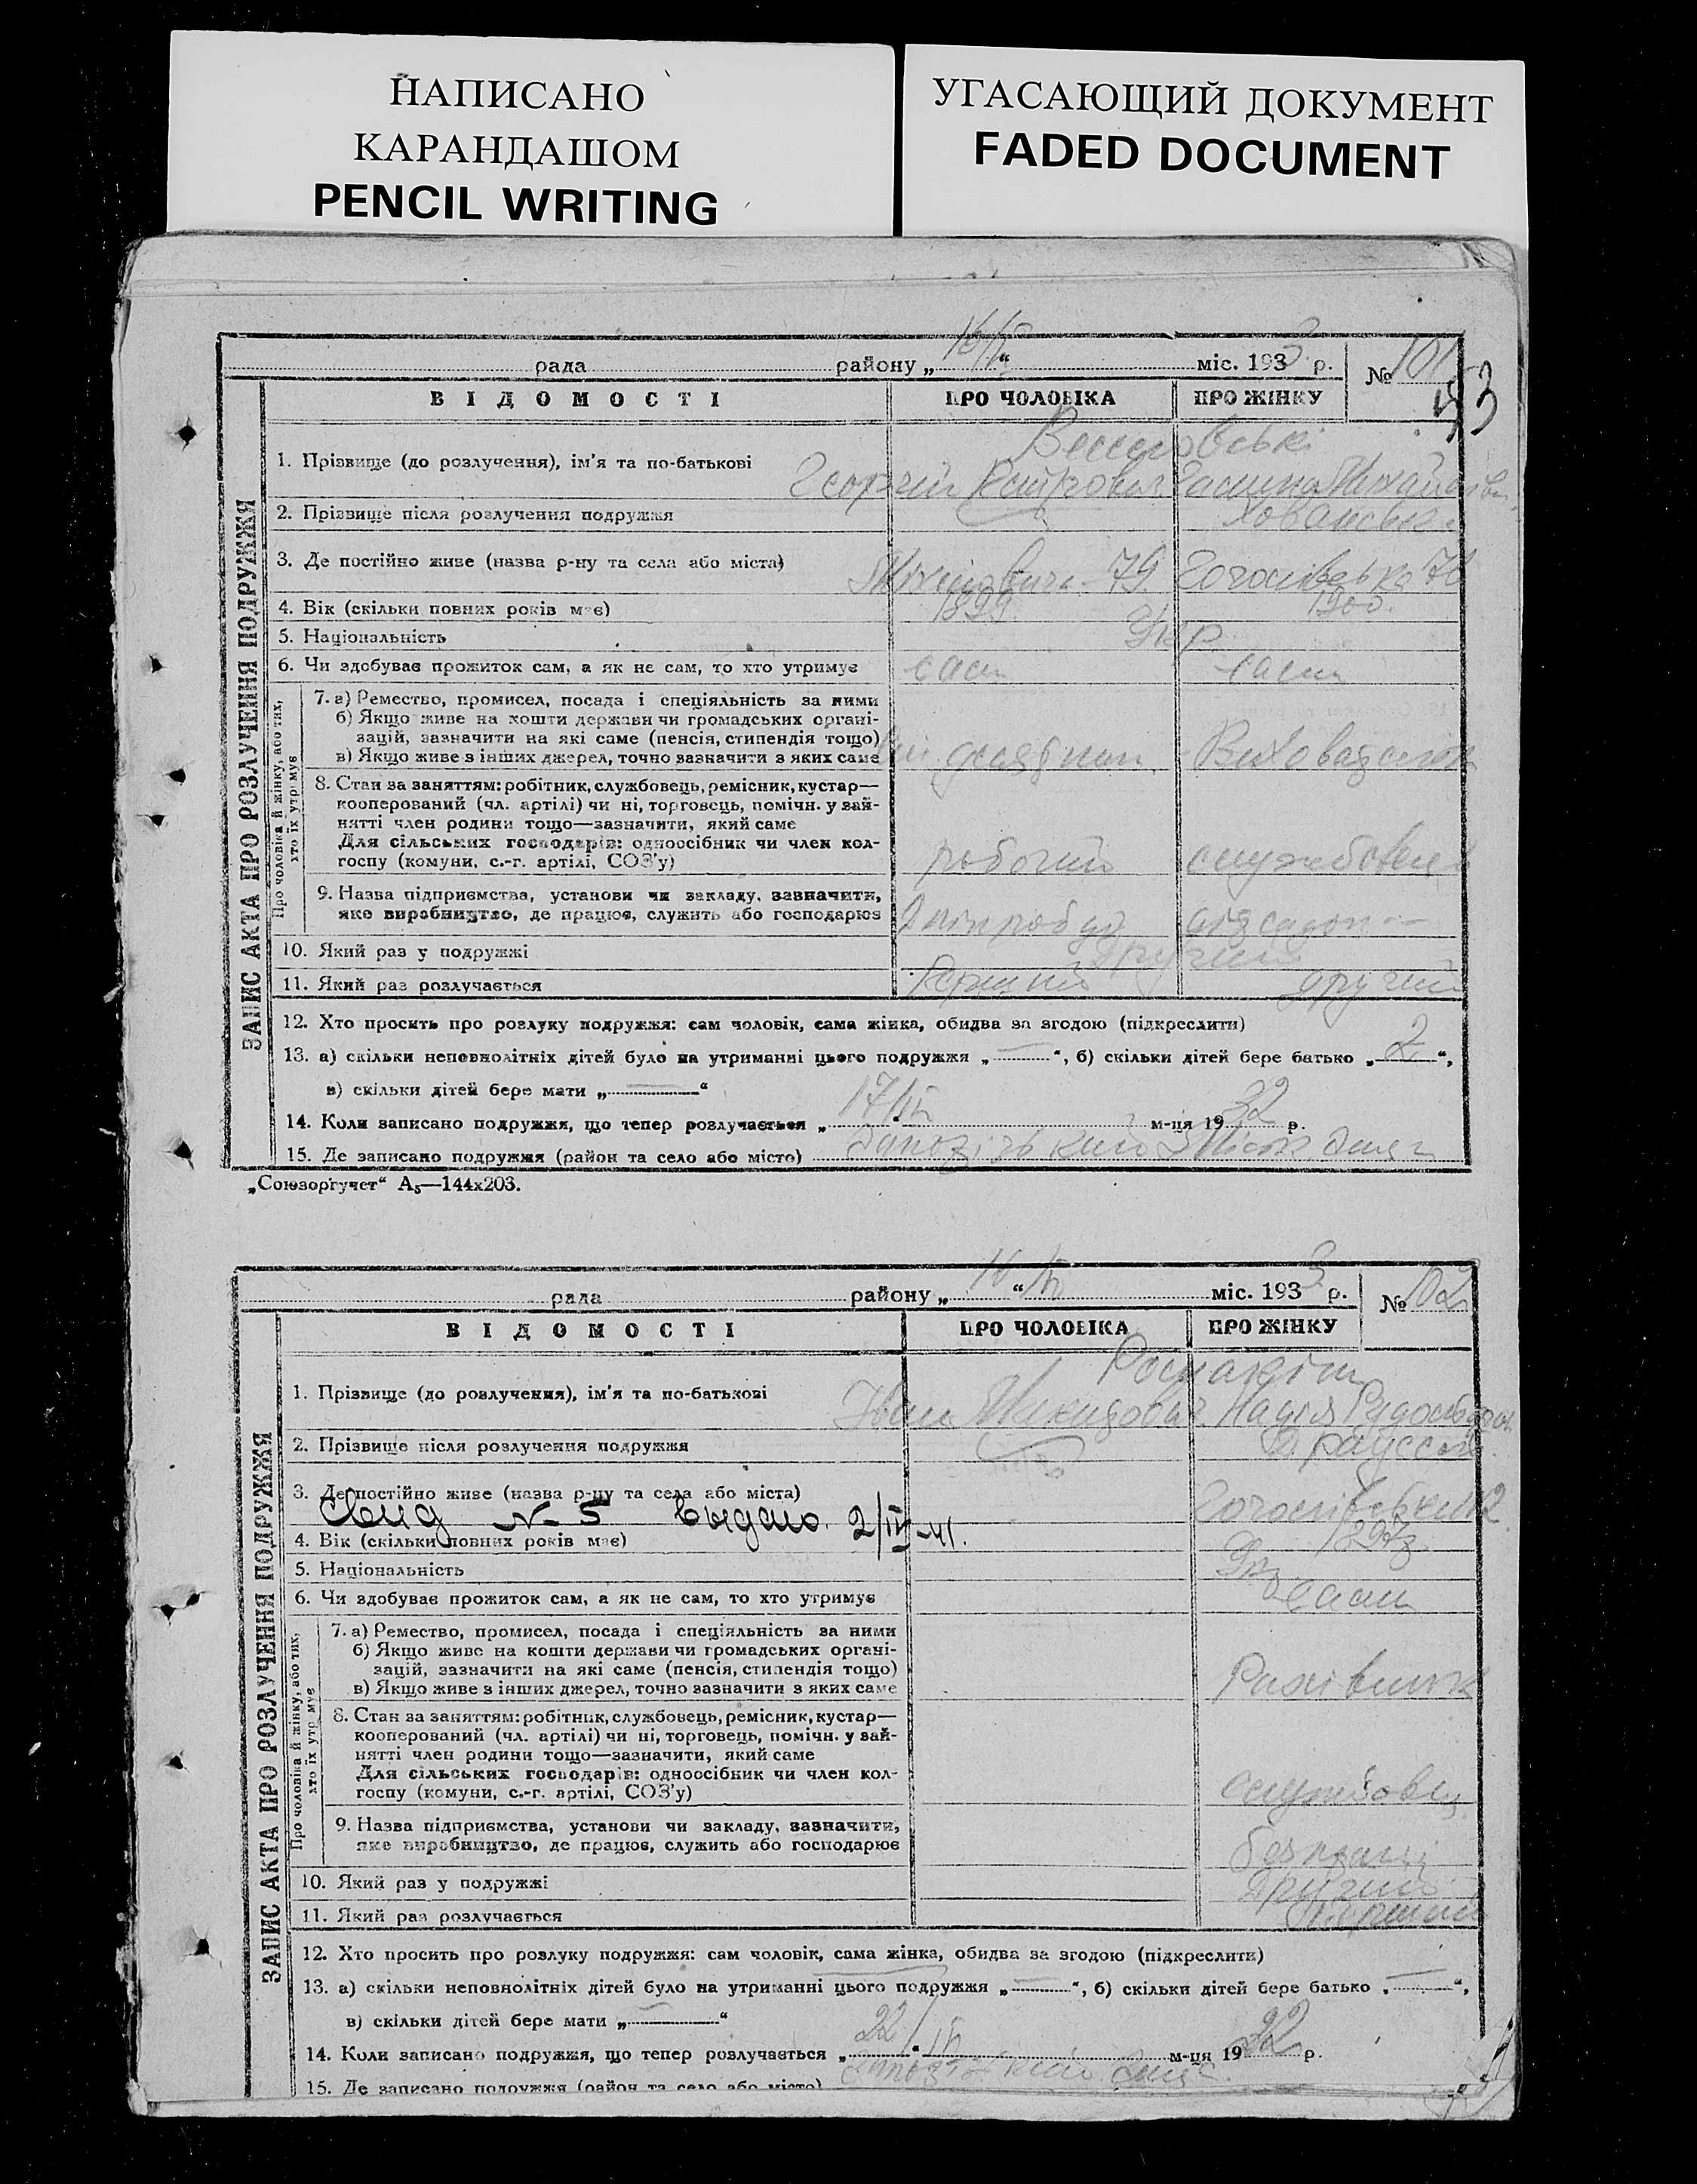 НАПИСАНО
КАРАНДАШОМ
PENCIL WRITING
УГАСАЮЩИЙ ДОКУМЕНТ
FADED DOCUMENT
рада району „ 16/IV “ міс. 1933 р. № 101
53
ЗАПИС АКТА ПРО РОЗЛУЧЕННЯ ПОДРУЖЖЯ
ВІДОМОСТІ ПРО ЧОЛОВІКА ПРО ЖІНКУ
1. Прізвище (до розлучення), ім'я та по-батькові
Георгій Галина Михайлівна
2. Прізвище після розлучення подружжя
3. Де постійно живе (назва р-ну та села або міста) 79 70
4. Вік (скільки повних років має) 1899 1900.
5. Національність Укр
6. Чи здобуває прожиток сам, а як не сам, то хто утримує сам сама
Про чоловіка й жінку, або тих, хто їх утримує
7. а) Ремество, промисел, посада і спеціяльність за ними
б) Якщо живе на кошти держави чи громадських органі-
зацій, зазначити на які саме (пенсія, стипендія тощо)
в) Якщо живе з інших джерел, точно зазначити з яких саме
8. Стан за заняттям: робітник, службовець, ремісник, кустар—
кооперований (чл. артілі) чи ні, торговець, помічн. у зай-
нятті член родини тощо—зазначити, який саме
Для сільських господарів: одноосібник чи член кол-
госпу (комуни, с.-г. артілі, СОЗ'у) робочий службовець
9. Назва підприємства, установи чи закладу, зазначити,
яке виробництво, де працює, служить або господарює
10. Який раз у подружжі другий
11. Який раз розлучається Перший другий
12. Хто просить про розлуку подружжя: сам чоловік, сама жінка, обидва за згодою (підкреслити)
13. а) скільки неповнолітніх дітей було на утриманні цього подружжя „ — “, б) скільки дітей бере батько „ 2 “,
в) скільки дітей бере мати „ — “
14. Коли записано подружжя, що тепер розлучається „ 17/IV “ м-ця 1932 р.
15. Де записано подружжя (район та село або місто)
„Союзоргучет“ А₅—144x203.
рада району „ 16 “ IV міс. 1933 р. № 102
ЗАПИС АКТА ПРО РОЗЛУЧЕННЯ ПОДРУЖЖЯ
ВІДОМОСТІ ПРО ЧОЛОВІКА ПРО ЖІНКУ
1. Прізвище (до розлучення), ім'я та по-батькові
Іван Микидович Надія
2. Прізвище після розлучення подружжя
3. Де постійно живе (назва р-ну та села або міста)
Свид № 5 выдано 2/IV-41.
4. Вік (скільки повних років має)
5. Національність
6. Чи здобуває прожиток сам, а як не сам, то хто утримує сама
Про чоловіка й жінку, або тих, хто їх утримує
7. а) Ремество, промисел, посада і спеціяльність за ними
б) Якщо живе на кошти держави чи громадських органі-
зацій, зазначити на які саме (пенсія, стипендія тощо)
в) Якщо живе з інших джерел, точно зазначити з яких саме Рахівник
8. Стан за заняттям: робітник, службовець, ремісник, кустар—
кооперований (чл. артілі) чи ні, торговець, помічн. у зай-
нятті член родини тощо—зазначити, який саме
Для сільських господарів: одноосібник чи член кол-
госпу (комуни, с.-г. артілі, СОЗ'у) службовець
9. Назва підприємства, установи чи закладу, зазначити,
яке виробництво, де працює, служить або господарює без праці
10. Який раз у подружжі Другий
11. Який раз розлучається Перший
12. Хто просить про розлуку подружжя: сам чоловік, сама жінка, обидва за згодою (підкреслити)
13. а) скільки неповнолітніх дітей було на утриманні цього подружжя „ — “, б) скільки дітей бере батько „ — “,
в) скільки дітей бере мати „ — “
14. Коли записано подружжя, що тепер розлучається „ 22 “ IV м-ця 1932 р.
15. Де записано подружжя (район та село або місто)